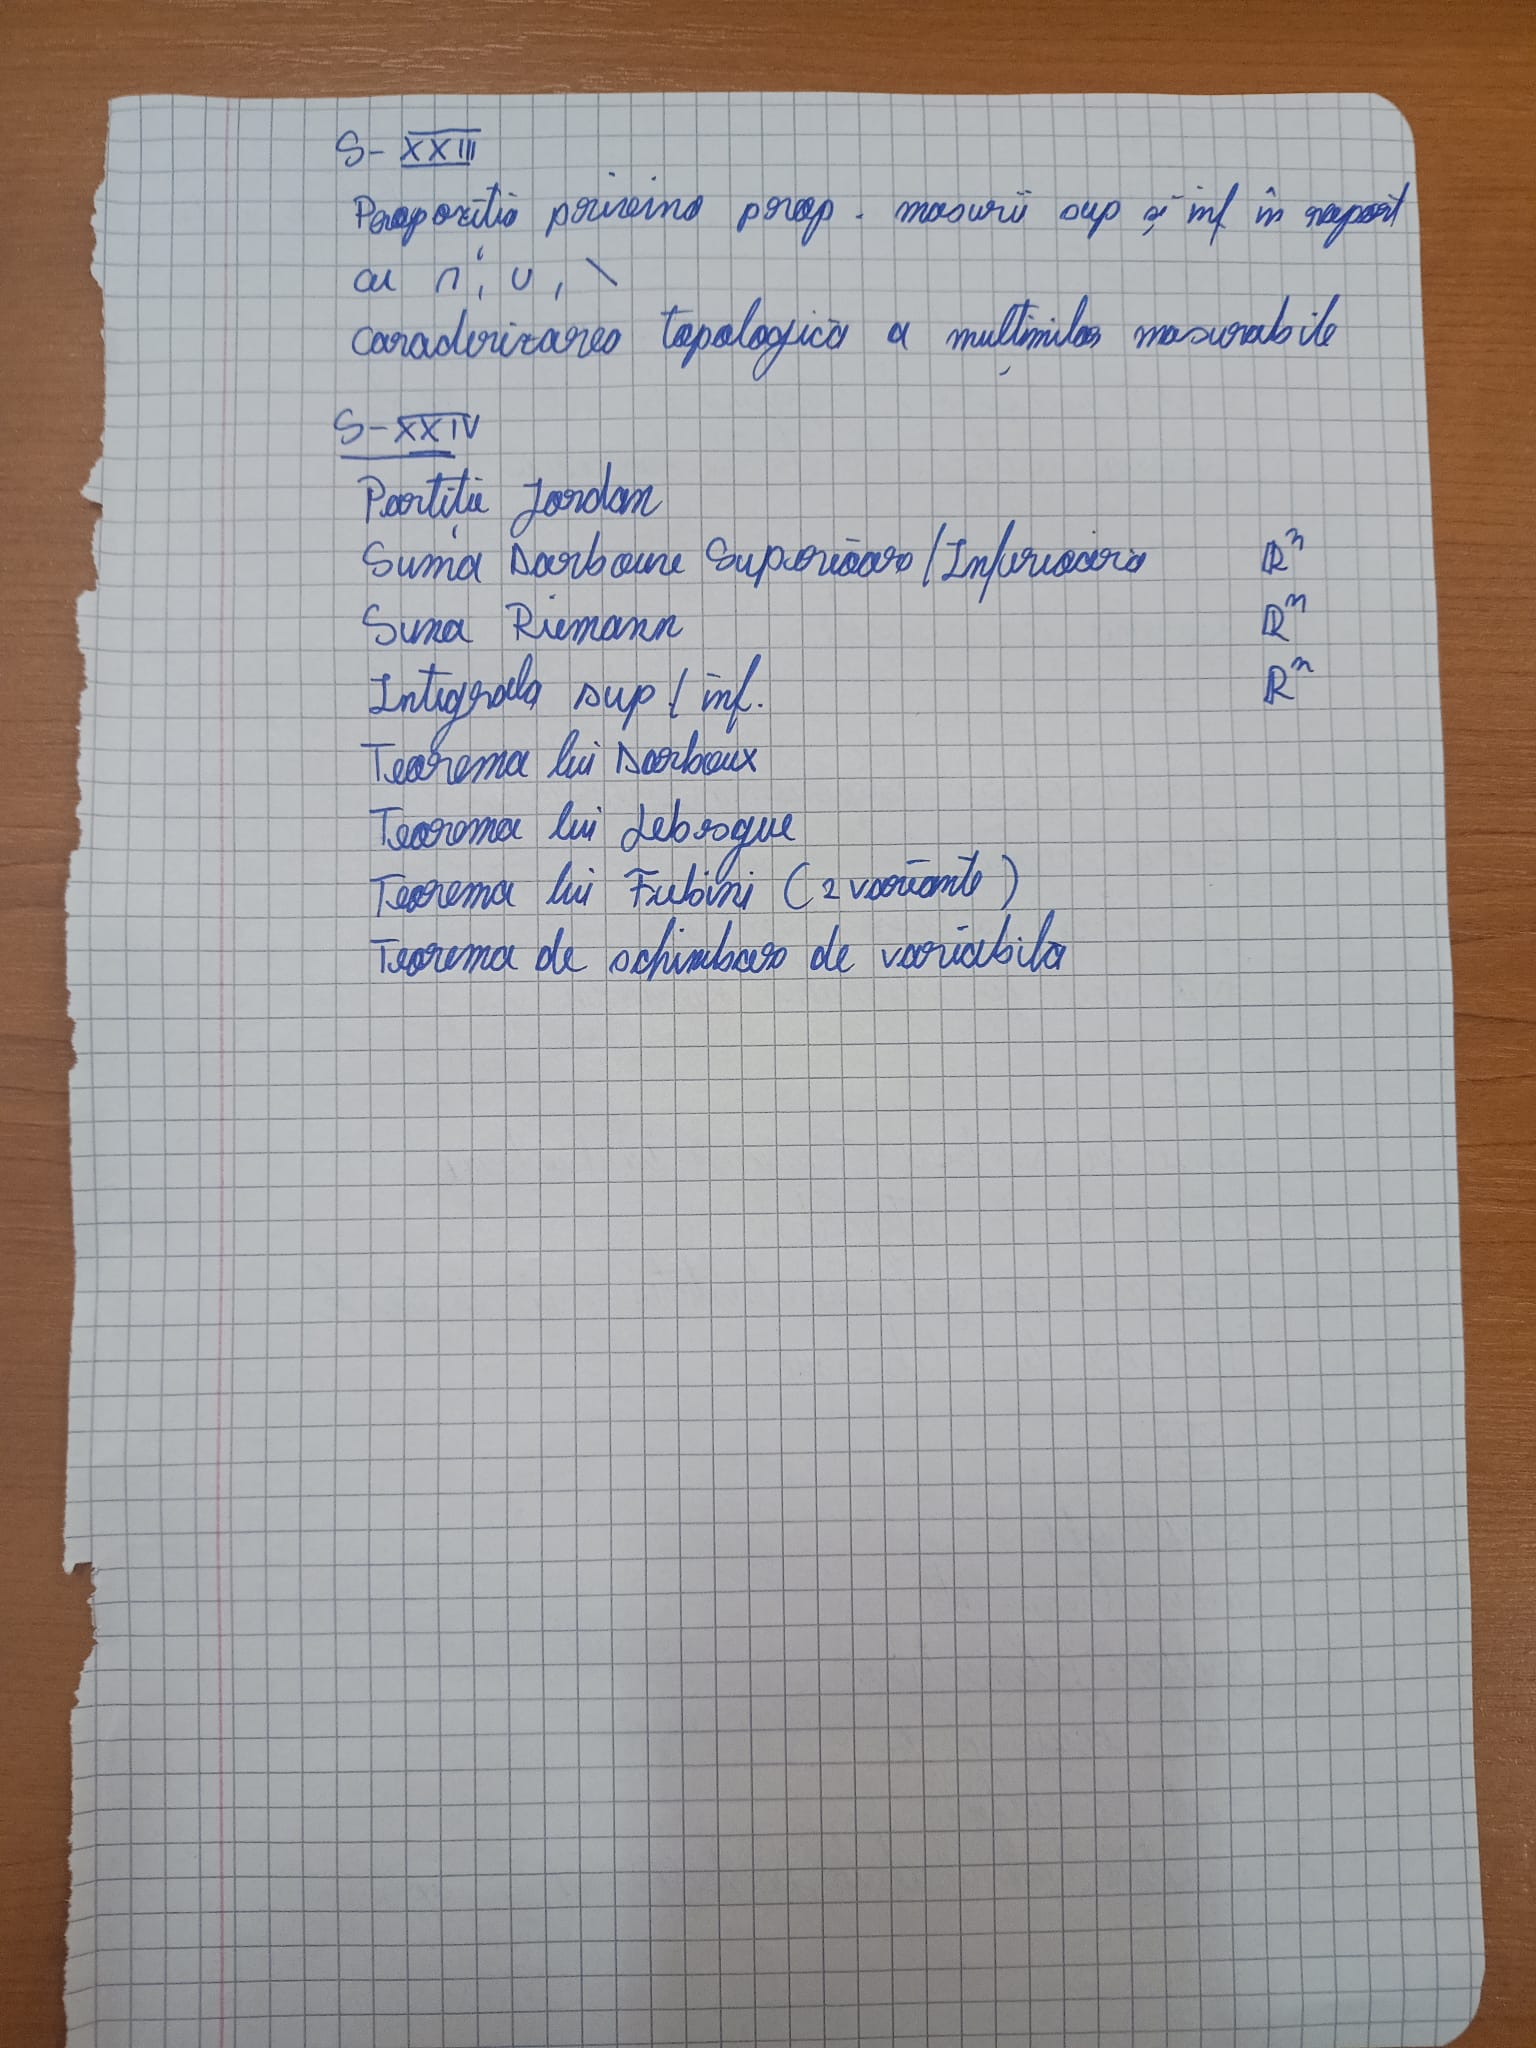 S-XXIII
Propoziție privind prop. măsurii sup și inf în raport
cu ∩, ∪, \
Caracterizarea topologică a mulțimilor măsurabile
S-XXIV
Partiție Jordan
Suma Darboux Superioară/Inferioară ℝⁿ
Suma Riemann ℝⁿ
Integrala sup/inf. ℝⁿ
Teorema lui Darboux
Teorema lui Lebesgue
Teorema lui Fubini (2 variante)
Teorema de schimbare de variabilă